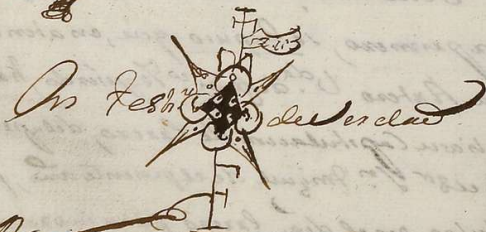 En testim.º de verdad